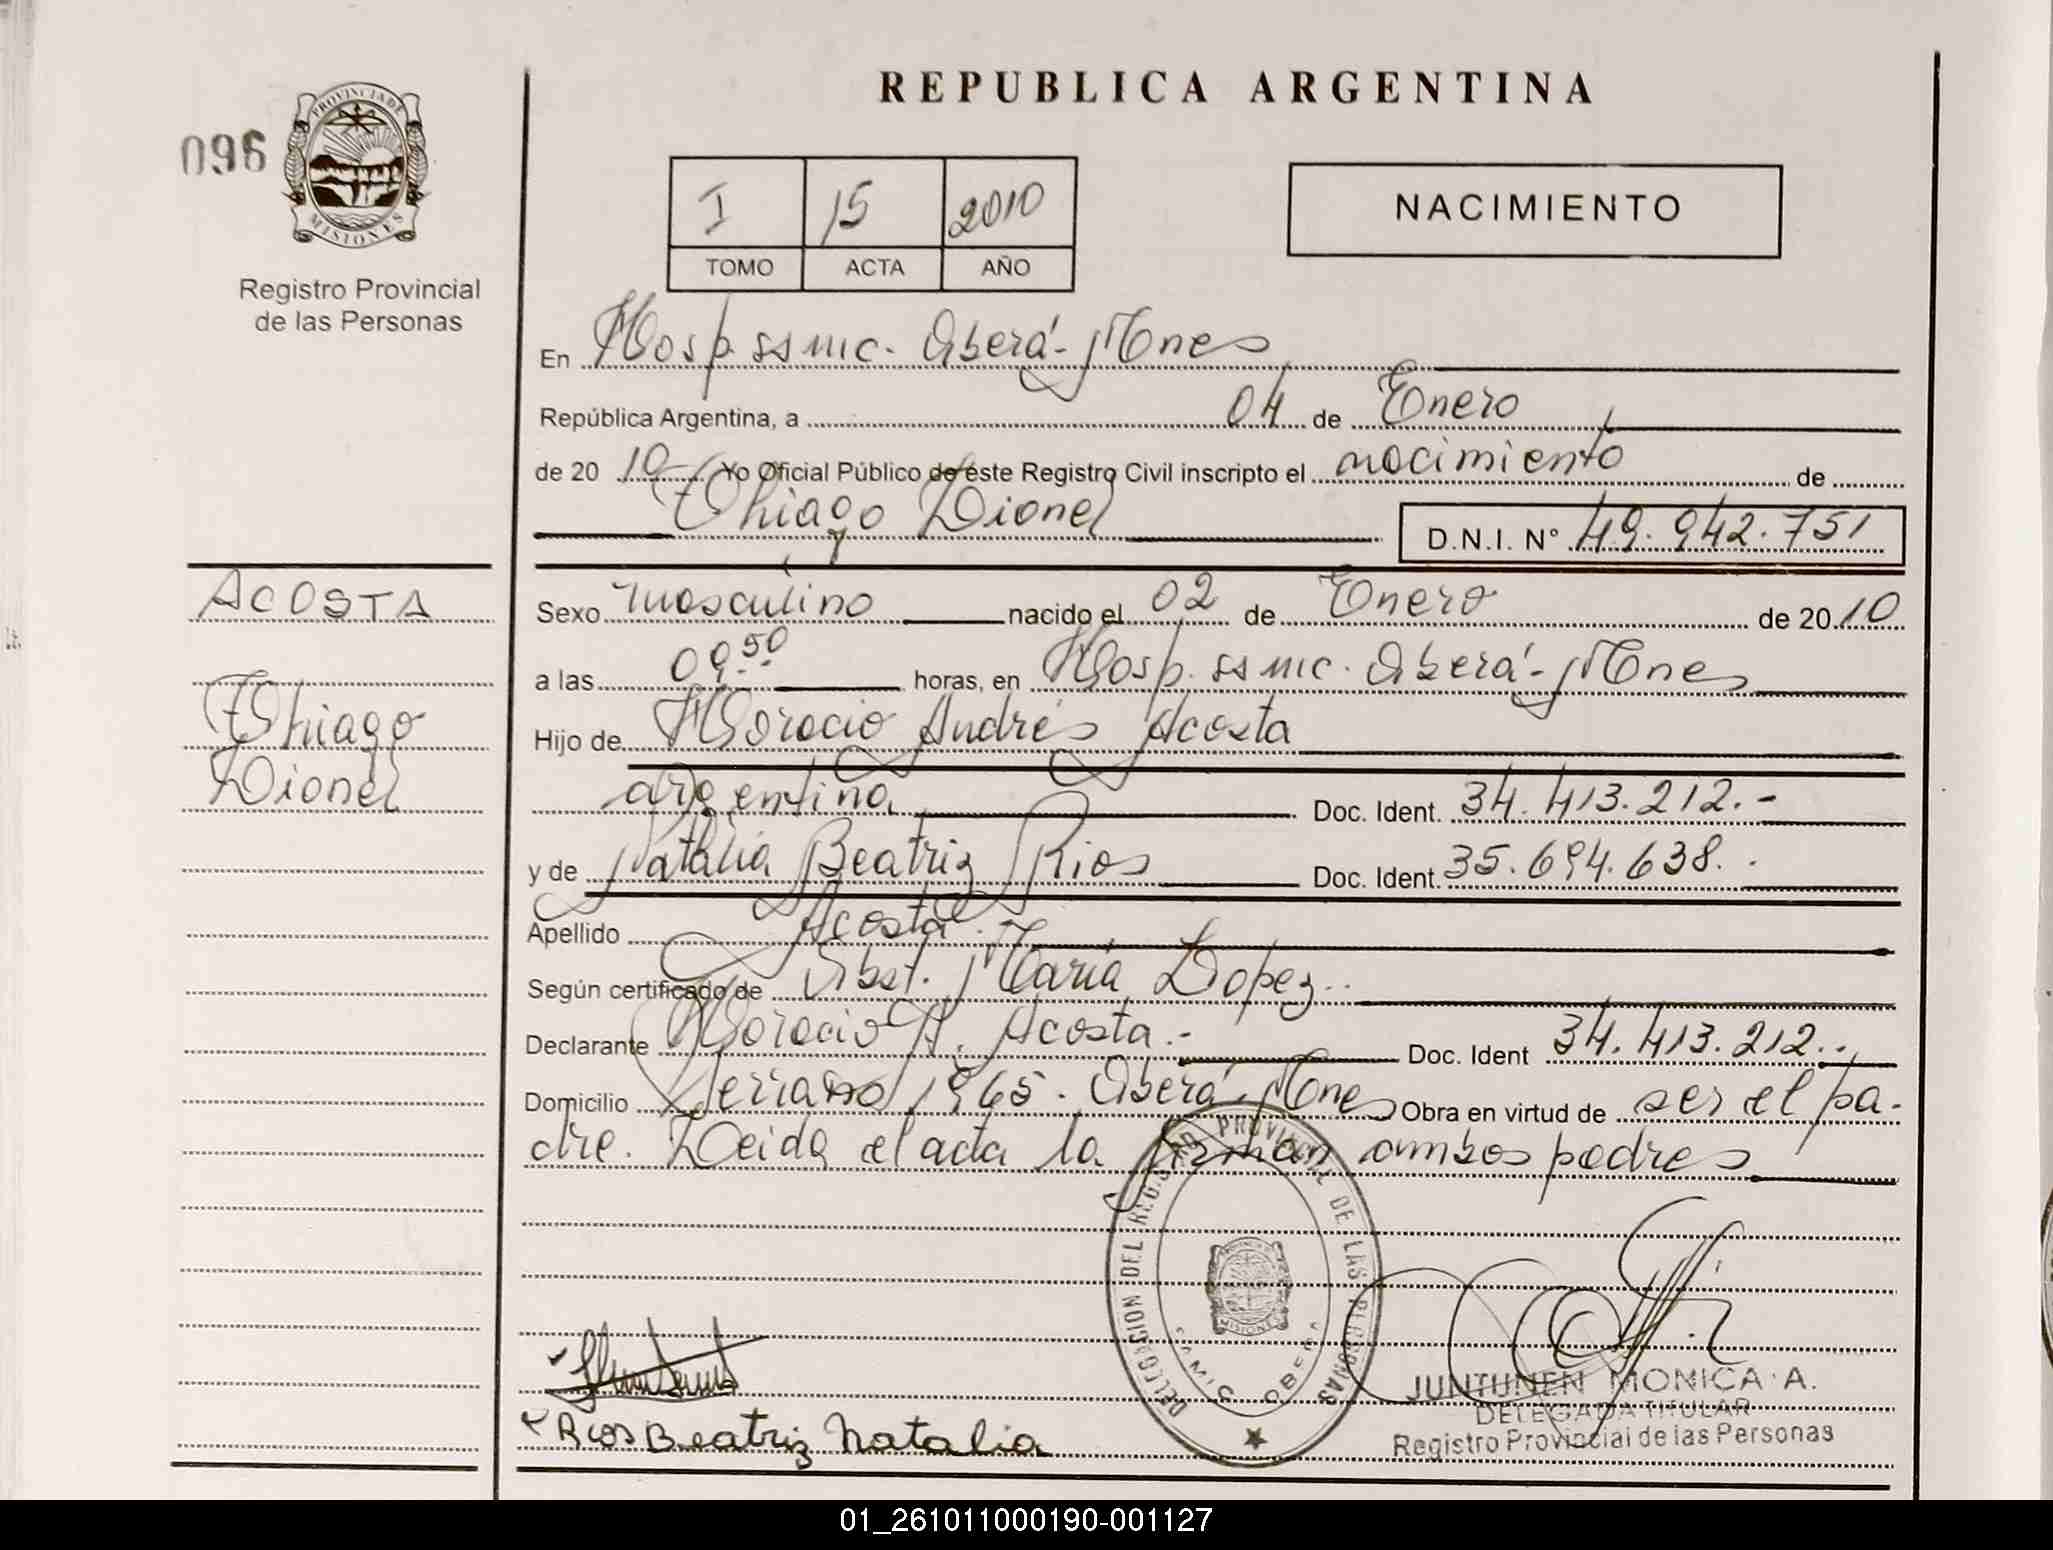 REPUBLICA ARGENTINA
096
PROVINCIA DE
MISIONES
Registro Provincial
de las Personas
I 15 2010
TOMO ACTA AÑO
NACIMIENTO
En Hosp. ssmc. Oberá - Mnes
República Argentina, a 04 de Enero
de 20 10 Yo Oficial Público de éste Registro Civil inscripto el nacimiento de
Thiago Lionel
D.N.I. N° 49.942.751
ACOSTA
Thiago
Lionel
Sexo masculino nacido el 02 de Enero de 20 10
a las 09.50 horas, en Hosp. ssmc. Oberá - Mnes
Hijo de Horacio Andrés Acosta
argentina Doc. Ident. 34.413.212.-
y de Natalia Beatriz Rios Doc. Ident. 35.694.638.
Apellido Acosta
Según certificado de Obst. María Lopez
Declarante Horacio A. Acosta.- Doc. Ident 34.413.212.
Domicilio 1965. Oberá - Mnes Obra en virtud de ser el pa-
dre. Leida el acta la firman ambos padres
DELEGACION DEL REGISTRO PROVINCIAL DE LAS PERSONAS
MISIONES
Rios Beatriz Natalia
JUNTUNEN MONICA A.
DELEGADA TITULAR
Registro Provincial de las Personas
01_261011000190-001127